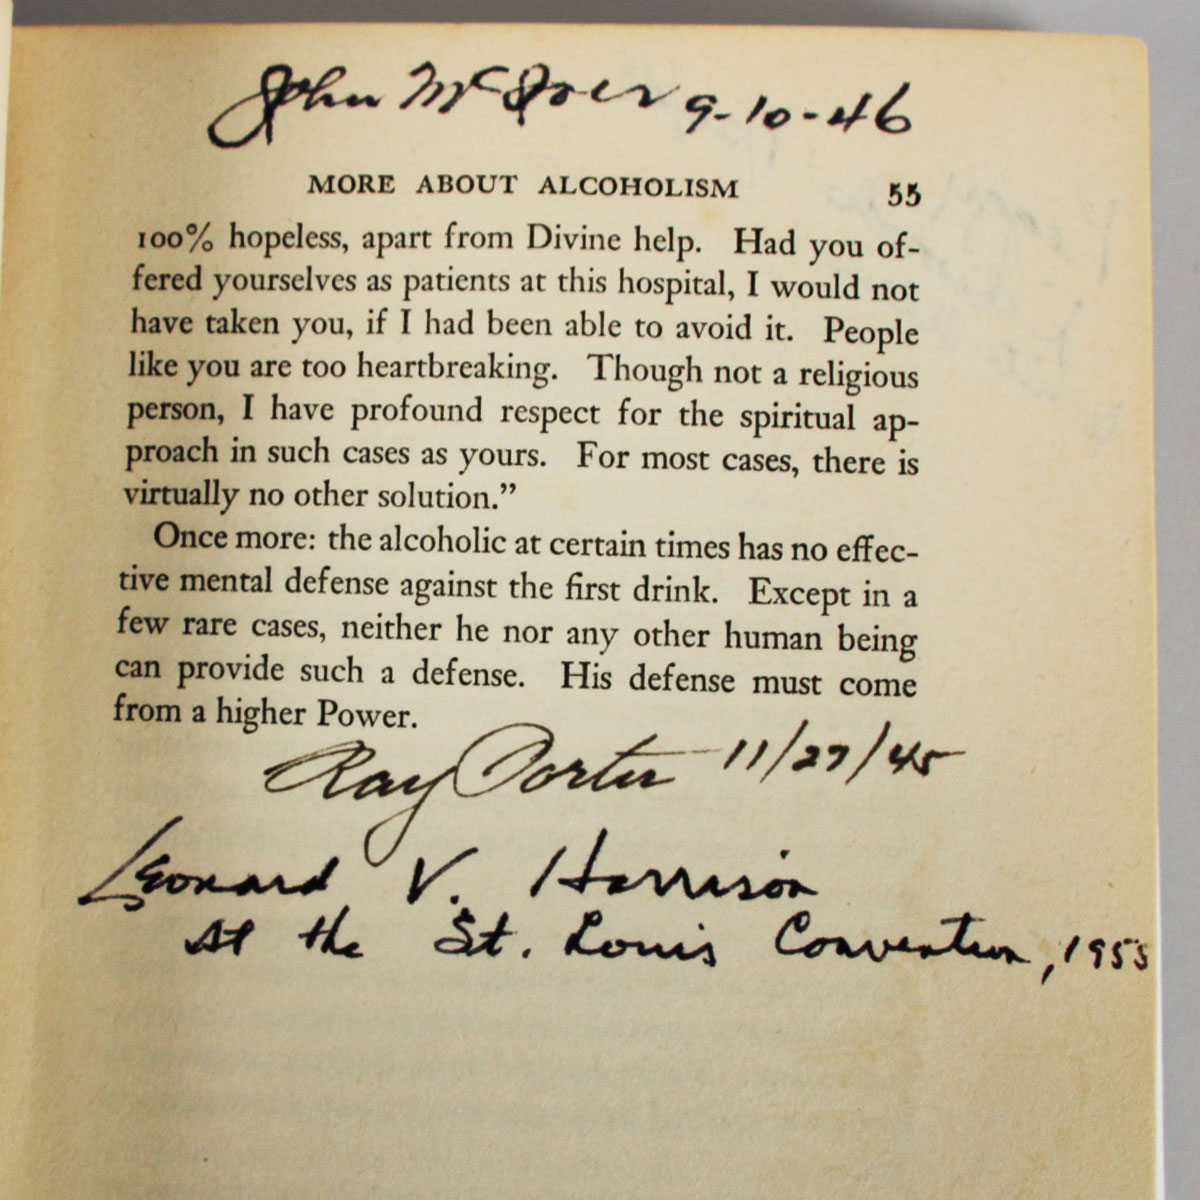 John 9-10-46
MORE ABOUT ALCOHOLISM 55
100% hopeless, apart from Divine help. Had you of-
fered yourselves as patients at this hospital, I would not
have taken you, if I had been able to avoid it. People
like you are too heartbreaking. Though not a religious
person, I have profound respect for the spiritual ap-
proach in such cases as yours. For most cases, there is
virtually no other solution.”
Once more: the alcoholic at certain times has no effec-
tive mental defense against the first drink. Except in a
few rare cases, neither he nor any other human being
can provide such a defense. His defense must come
from a higher Power.
Ray Porter 11/27/45
Leonard V. Harrison
At the St. Louis Convention, 1955